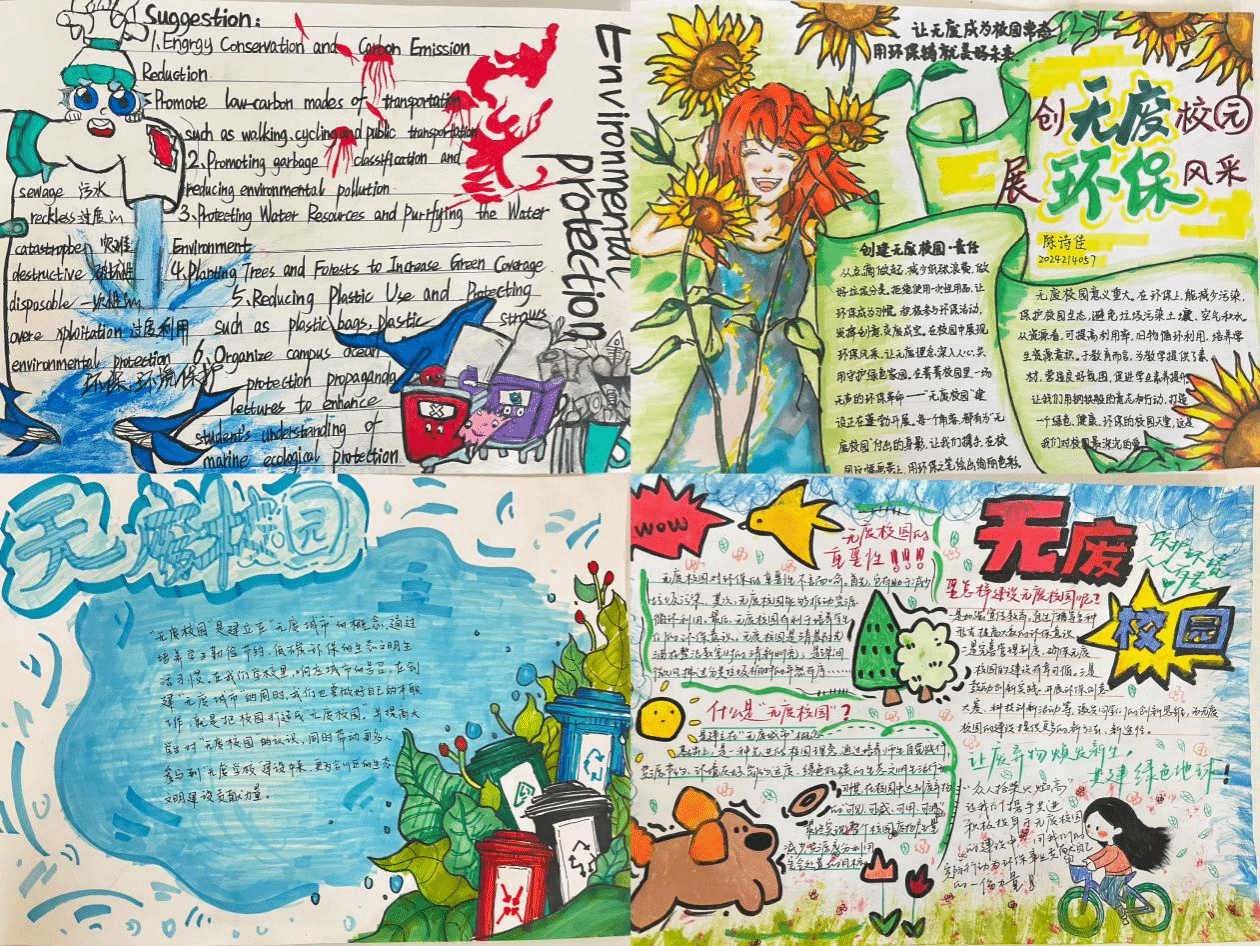 Suggestion:
1. Engrgy Conservation and Carbon Emission
Reduction
Promote low-carbon mades of transportation
such as walking, cycling and public transportation
2. Promoting garbage classification and
reducing environmental pollution
3. Protecting Water Resources and Purrfying the Water
Environment
4. Planting Trees and Forests to Increase Green Coverage
5. Reducing Plastic Use and Protecting
such as plastic bags, plastic straws
6. Organize campus ocean
protection propaganda
lettures to enhance
student's understanding of
marine ecological protection
Environmental
protection
sewage 污水
reckless 过度的
catastrophen 灾难
destructive 破坏性
disposable 一次性的
overe xploitation 过度利用
environmental protection
环保、环境保护
让无废成为校园常态
用环保铸就美好未来
创无废校园
展环保风采
陈诗佳
2024214057
创建无废校园·责任
从点滴做起,减少纸张浪费,做
好垃圾分类,拒绝使用一次性用品,让
环保成习惯,积极参与环保活动,
发挥创意,变废成宝,在校园中展现
环保风采,让无废理念深入人心,共
用守护绿色家园。在菁菁校园里一场
无声的环保革命——“无废校园”建
设正在蓬勃开展,每一个角落,都有为“无
废校园”付出的身影,让我们携手,在校
无废校园意义重大,在环保上,能减少污染,
保护校园生态,避免垃圾污染土壤、空气和水
从资源看,可提高利用率,旧物循环利用,培养学
生资源意识。于教育而言,为教学提供了素
材,营造良好氛围,促进学生素养提升
让我们用钢铁般的意志和行动,打造
一个绿色、健康、环保的校园天堂,这是
我们对校园最深沉的爱
无废校园
“无废校园”是建立在“无废城市”的概念,通过
培养学生勤俭节约、低碳环保的生态文明生
活习惯。在我们学校里,响应城市的号召,在创
建“无废城市”的同时,我们也要做好自己的本职
工作,就是把校园打造成“无废校园”,并提高大
学生对“无废校园”的认识,同时带动更多人
参与到“无废学校”建设中来,更为的生态
文明建设贡献力量。
WOW
无废校园的
重要性!!!!
无废校园对环保的重要性不言而喻。首先,它有助于减少
垃圾污染。其次,无废校园能够推动资源
循环利用。最后,无废校园有利于培养学生
们的环保意识。
什么是“无废校园”?
是建立在“无废城市”概念
基础上,是一种先进的校园理念,通过培养师生自觉践行
习惯,在校园中达到废弃物
的“可见、可减、可用、可
无废
校园
保护环境
人人有责
要怎样建设无废校园呢?
是加强宣传教育,通过广播等多种
形式提高大家的环保意识
二是完善管理制度,确保无废
校园的建设有章可循。三是
鼓励创新实践,开展环保创意
大赛、科技创新活动等,激发同学们的创新思维,为无废
校园的建设提供更多的新方法、新途径。
让废弃物焕发新生,
共建绿色地球!
众人拾柴火焰高
让我们携手共进
积极投身于无废校园
的建设中,
的一份力量!